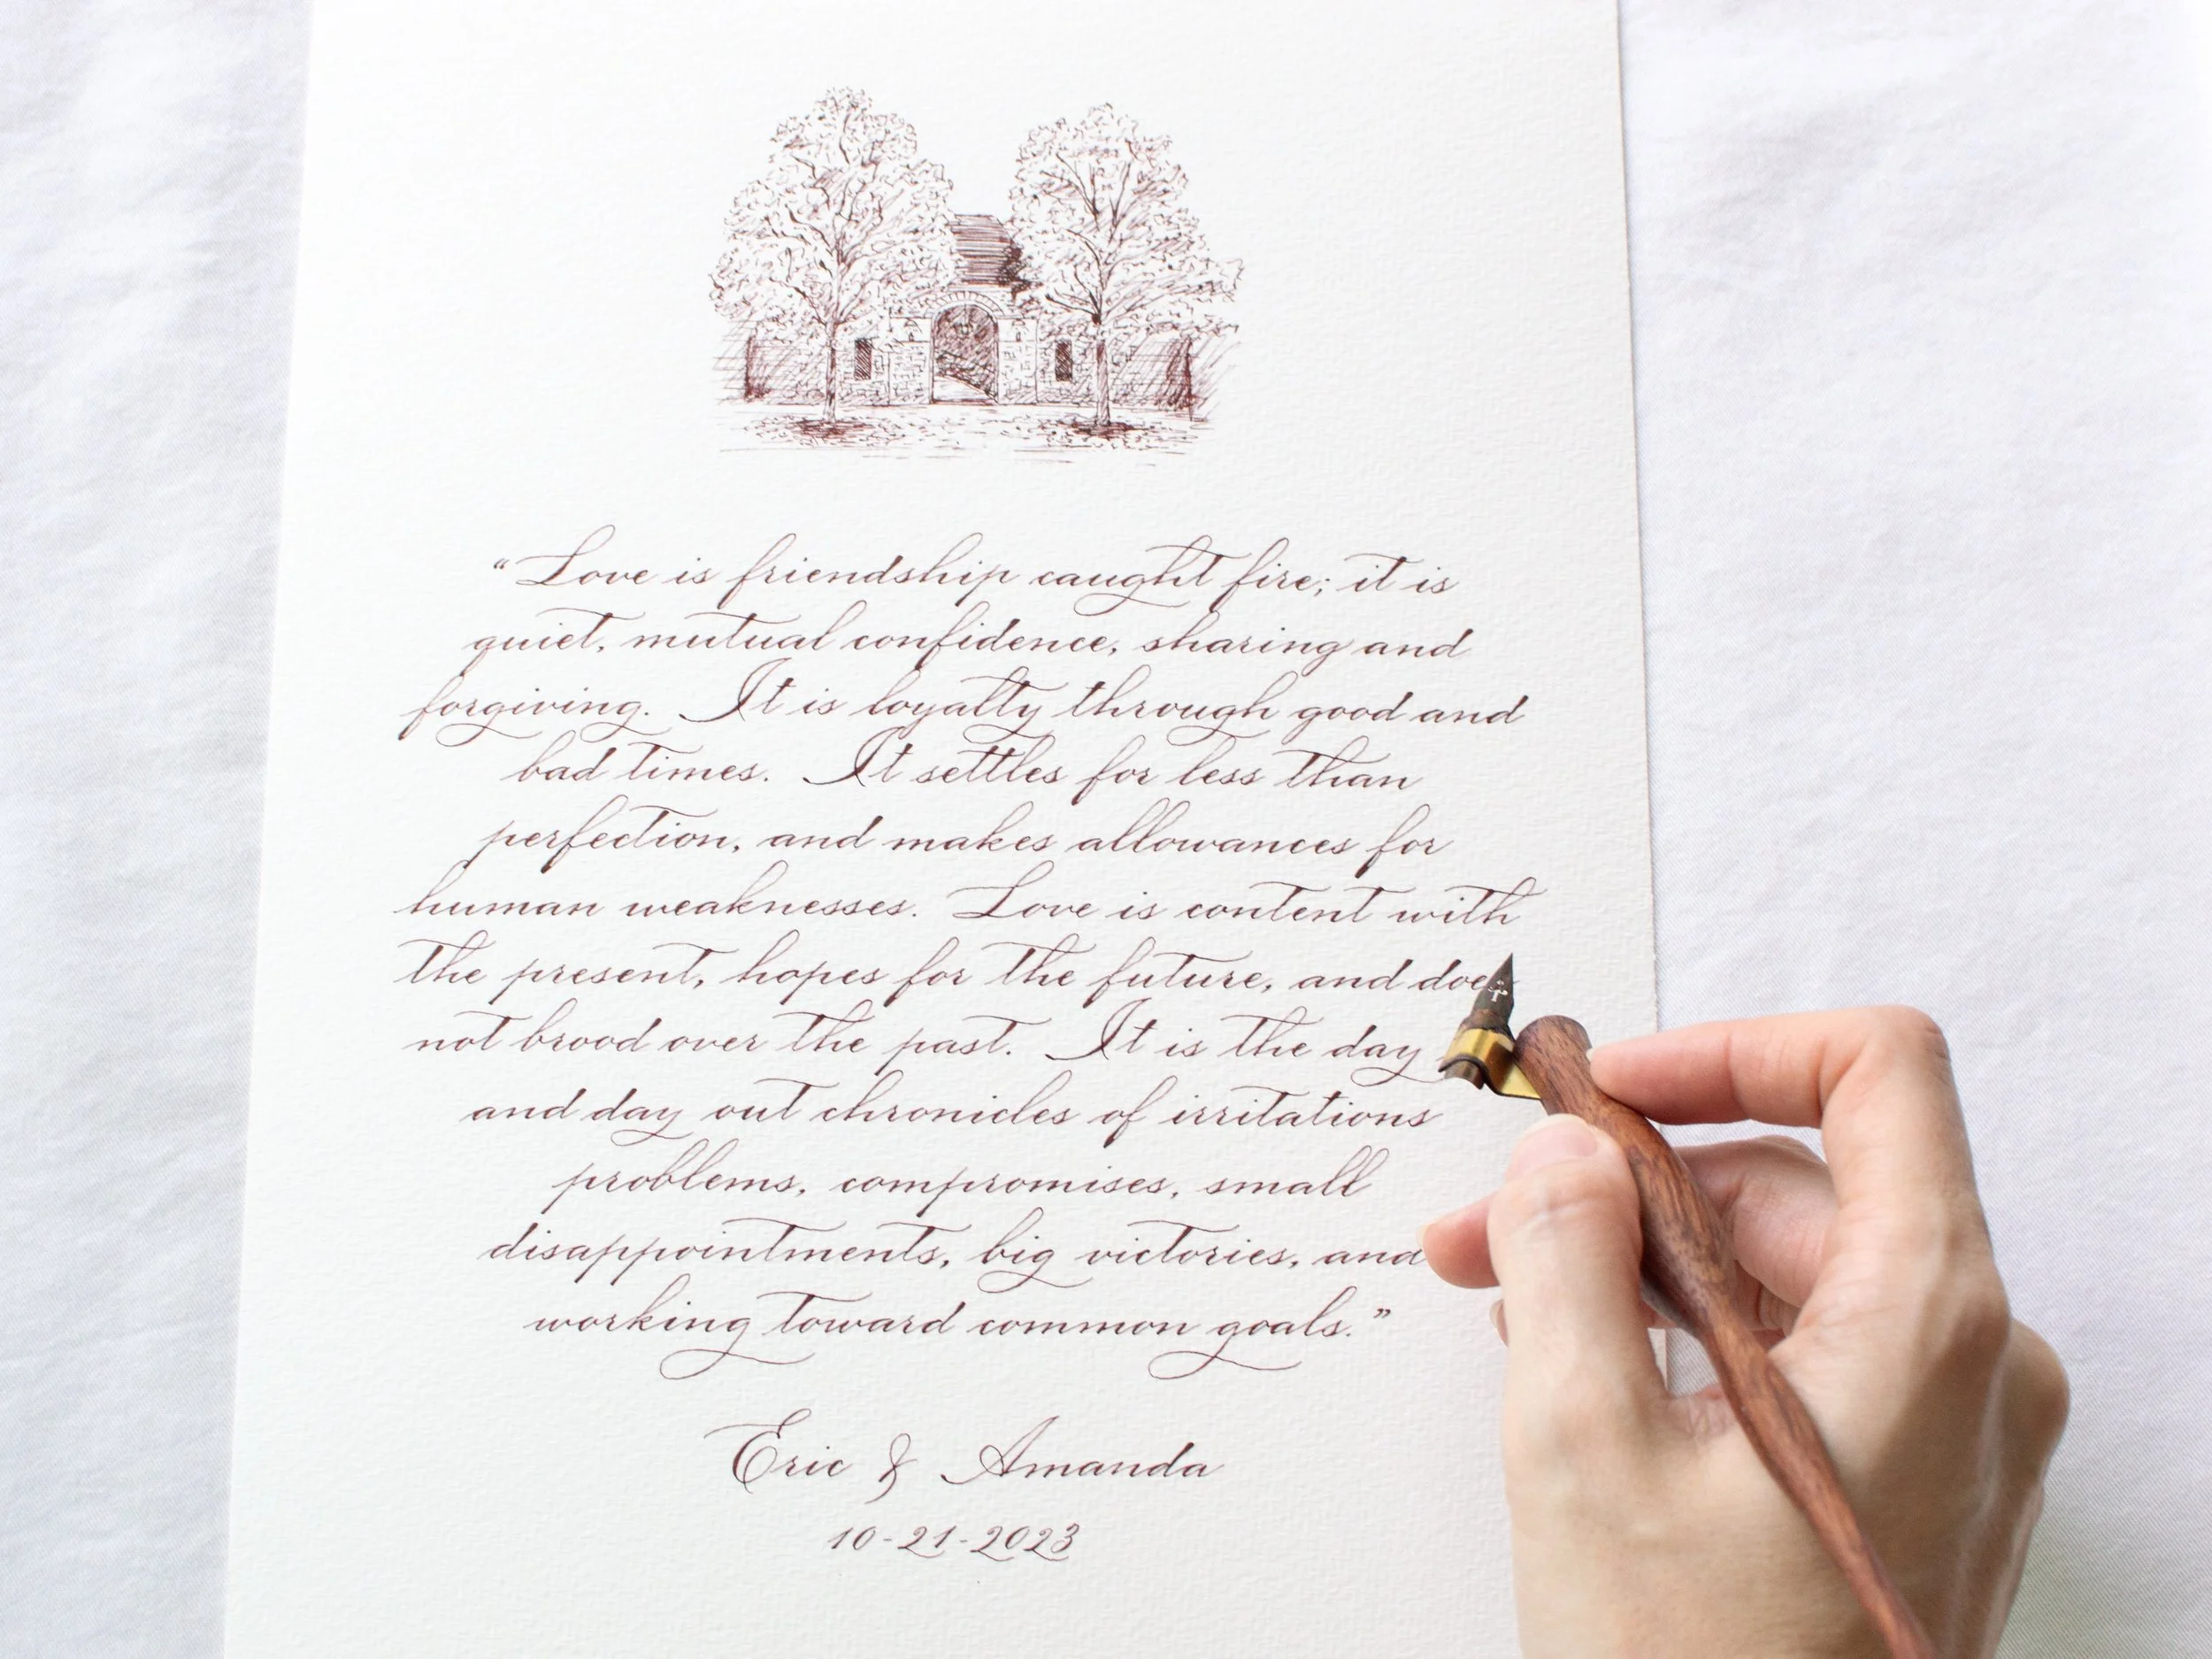 “Love is friendship caught fire; it is
quiet, mutual confidence, sharing and
forgiving. It is loyalty through good and
bad times. It settles for less than
perfection, and makes allowances for
human weaknesses. Love is content with
the present, hopes for the future, and does
not brood over the past. It is the day
and day out chronicles of irritations
problems, compromises, small
disappointments, big victories, and
working toward common goals.”
Eric & Amanda
10-21-2023